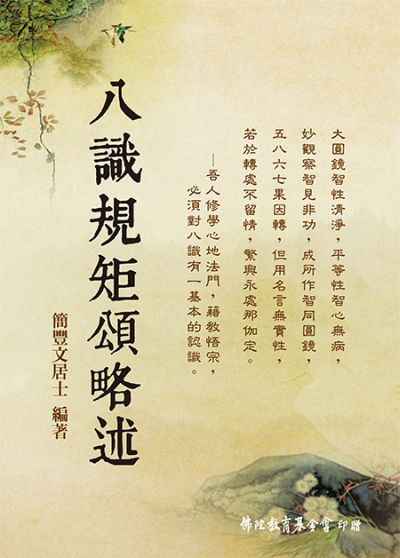 大圓鏡智性清淨，平等性智心無病，
妙觀察智見非功，成所作智同圓鏡，
五八六七果因轉，但用名言無實性，
若於轉處不留情，繁興永處那伽定。
—吾人修學心地法門，藉教悟宗，
必須對八識有一基本的認識。
八識規矩頌略述
簡豐文居士 編著
佛陀教育基金會 印贈